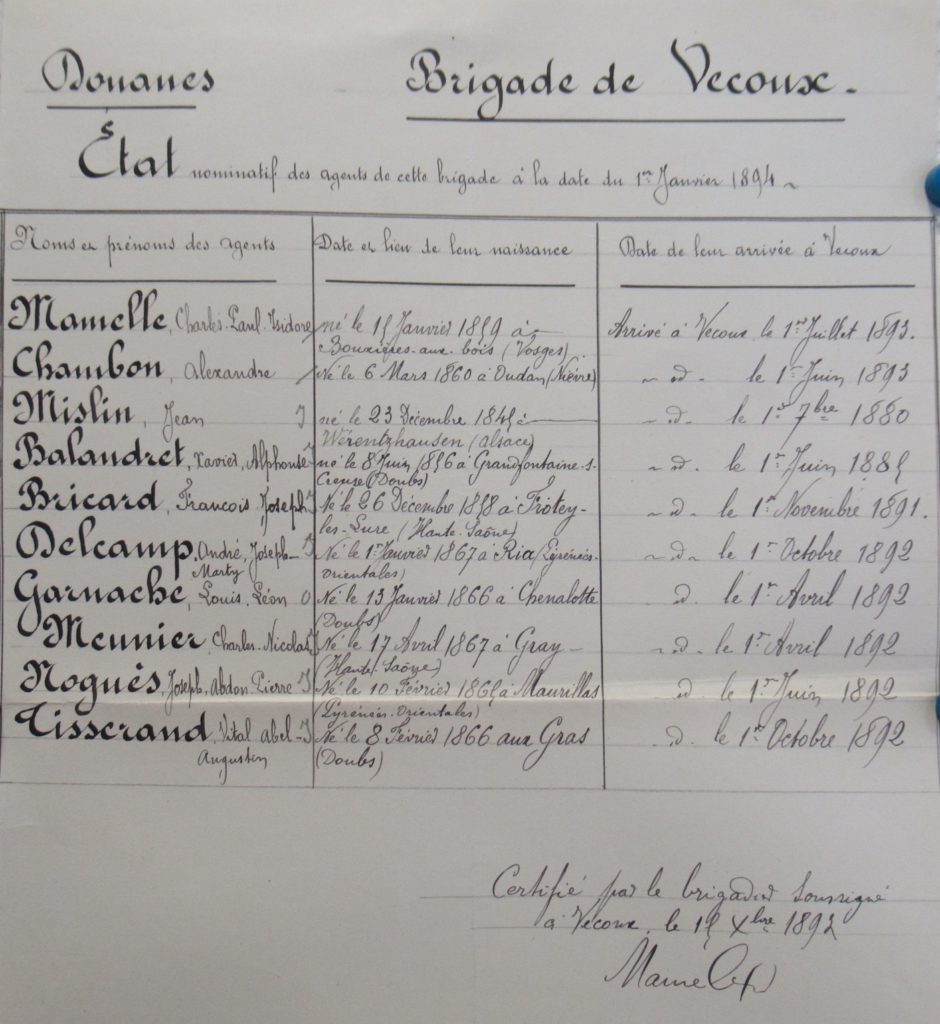 Douanes Brigade de Vecoux.
État nominatif des agents de cette brigade à la date du 1er Janvier 1894
Noms et prénoms des agents Date et lieu de leur naissance Date de leur arrivée à Vecoux
Mamelle, Charles-Paul-Isidore né le 15 Janvier 1859 à Arrivé à Vecoux le 1er Juillet 1893.
Bouxières-aux-bois (Vosges).
Chambon, Alexandre Né le 6 Mars 1860 à Oudan (Nièvre) - id - le 1er Juin 1893
Mislin, Jean né le 23 Décembre 1845 à - id - le 1er 7bre 1880
Werentzhausen (alsace)
Balandret, Xavier, Alphonse né le 8 Juin 1856 à Grandfontaine-s- - id - le 1er Juin 1885
Creuse (Doubs)
Bricard, François, Joseph Né le 26 Décembre 1858 à Frotey- - id - le 1er Novembre 1891.
les-Lure (Haute-Saône)
Delcamp, André, Joseph- Né le 1er Janvier 1867 à Ria (Pyrénées- - id - le 1er Octobre 1892
Marty orientales)
Garnache, Louis. Léon Né le 13 Janvier 1866 à Chenalotte - id - le 1er Avril 1892
(Doubs)
Meunier, Charles-Nicolas Né le 17 Avril 1867 à Gray - - id - le 1er Avril 1892
(Haute-Saône)
Noguès, Joseph, Abdon, Pierre Né le 10 Février 1865 à Maurillas - id - le 1er Juin 1892
(Pyrénées-Orientales)
Tisserand, Vital abel- Né le 8 Février 1866 aux Gras - id - le 1er Octobre 1892
Augustin (Doubs)
Certifié par le brigadier soussigné
à Vecoux, le 15 Xbre 1893
Mamelle